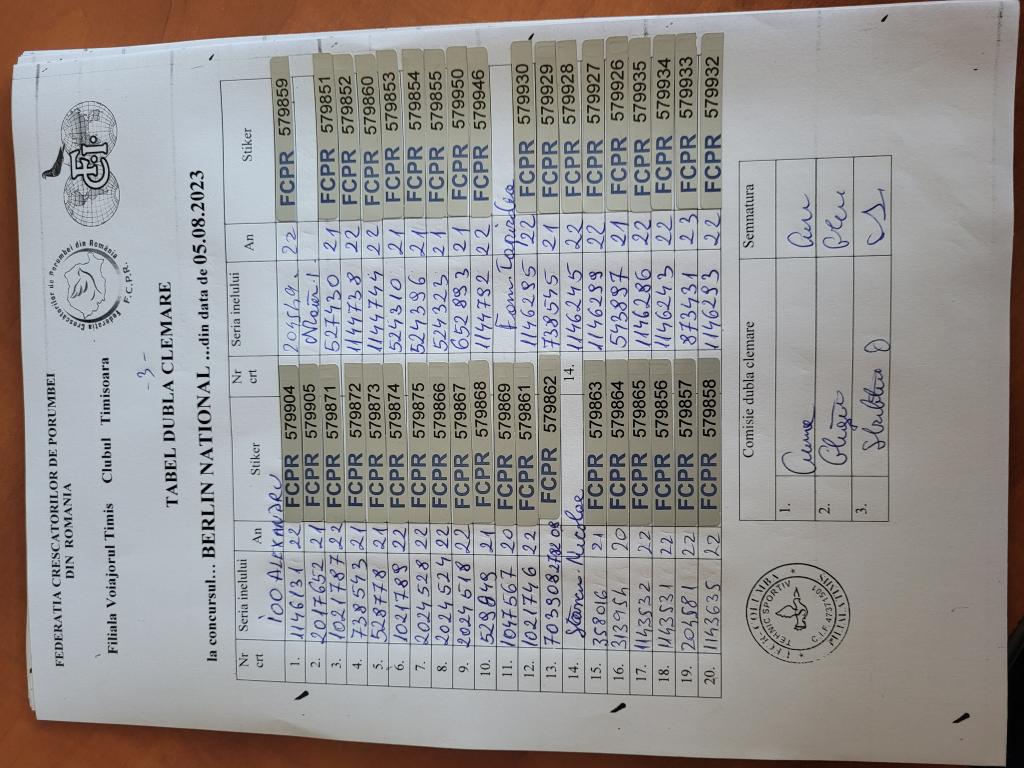 FEDERATIA CRESCATORILOR DE PORUMBEI
DIN ROMANIA
Federatia Crescatorilor de Porumbei din România
F.C.P.R.
Filiala Voiajorul Timis Clubul Timisoara
-3-
TABEL DUBLA CLEMARE
la concursul... BERLIN NATIONAL ...din data de 05.08.2023
Nr crt Seria inelului An Stiker Nr crt Seria inelului An Stiker
IOO ALEXANDRU
1. 1146131 22 FCPR 579904 204569. 22 FCPR 579859
2. 2017652 21 FCPR 579905
3. 1021787 22 FCPR 579871 527430 21 FCPR 579851
4. 738543 21 FCPR 579872 1144738 22 FCPR 579852
5. 528778 21 FCPR 579873 1144744 22 FCPR 579860
6. 1021789 22 FCPR 579874 524310 21 FCPR 579853
7. 2024528 22 FCPR 579875 524396 21 FCPR 579854
8. 2024524 22 FCPR 579866 524323 21 FCPR 579855
9. 2024518 22 FCPR 579867 652893 21 FCPR 579950
10. 529849 21 FCPR 579868 1144792 22 FCPR 579946
11. 104567 20 FCPR 579869 Fam.
12. 1021746 22 FCPR 579861 1146295 22 FCPR 579930
13. 7039082732 08 FCPR 579862 738545 21 FCPR 579929
14. Stancu Nicolae 14. 1146245 22 FCPR 579928
15. 358016 21 FCPR 579863 1146299 22 FCPR 579927
16. 313954 20 FCPR 579864 543897 21 FCPR 579926
17. 1143532 22 FCPR 579865 1146286 22 FCPR 579935
18. 1143531 22 FCPR 579856 1146243 22 FCPR 579934
19. 204581 22 FCPR 579857 873431 23 FCPR 579933
20. 1143635 22 FCPR 579858 1146293 22 FCPR 579932
Comisie dubla clemare Semnatura
1.
2.
3.
COLUMBA
TEHNIC SPORTIV